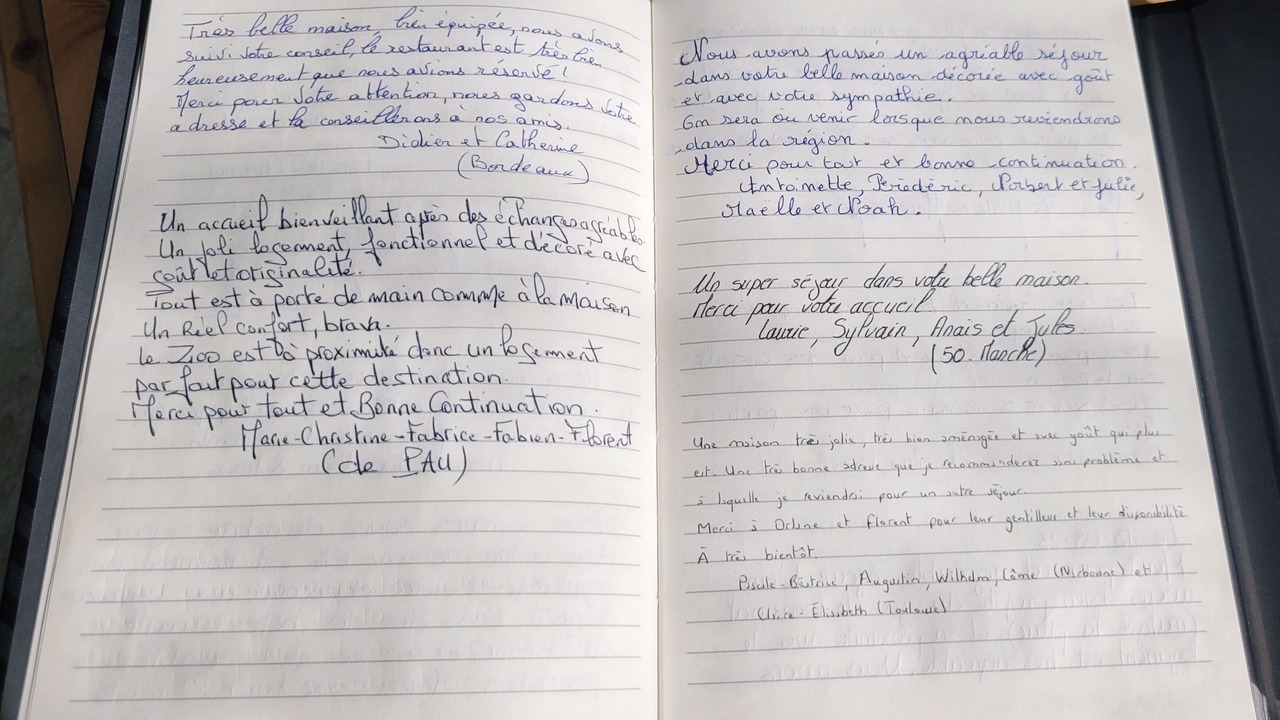 Très belle maison, bien équipée, nous avons
suivi votre conseil le restaurant est très bien
heureusement que nous avions réservé !
Merci pour votre attention, nous gardons votre
adresse et la conseillerons à nos amis.
Didier et Catherine
(Bordeaux)
Un accueil bienveillant après des échanges agréables.
Un joli logement, fonctionnel et décoré avec
goût et originalité.
Tout est à porté de main comme à la maison
Un Réel confort, bravo.
le Zoo est à proximité donc un logement
parfait pour cette destination.
Merci pour tout et Bonne Continuation.
Marie-Christine-Fabrice-Fabien-Florent
(de PAU)
Nous avons passés un agréable séjour
dans votre belle maison décorée avec goût
et avec votre sympathie.
On sera où venir lorsque nous reviendrons
dans la région.
Merci pour tout et bonne continuation.
Antoinette, Frédéric, Norbert et Julie,
Maëlle et Noah.
Un super séjour dans votre belle maison.
Merci pour votre accueil.
Laurie, Sylvain, Anais et Jules
(50. Manche)
Une maison très jolie, très bien aménagée et avec goût qui plus
est. Une très bonne adresse que je recommanderai sans problème et
à laquelle je reviendrai pour un autre séjour.
Merci à et Florent pour leur gentillesse et leur disponibilité
À très bientôt.
Pascale-Béatrice, Augustin, Wilhelm, Côme (Narbonne) et
Claire-Élisabeth (Toulouse)